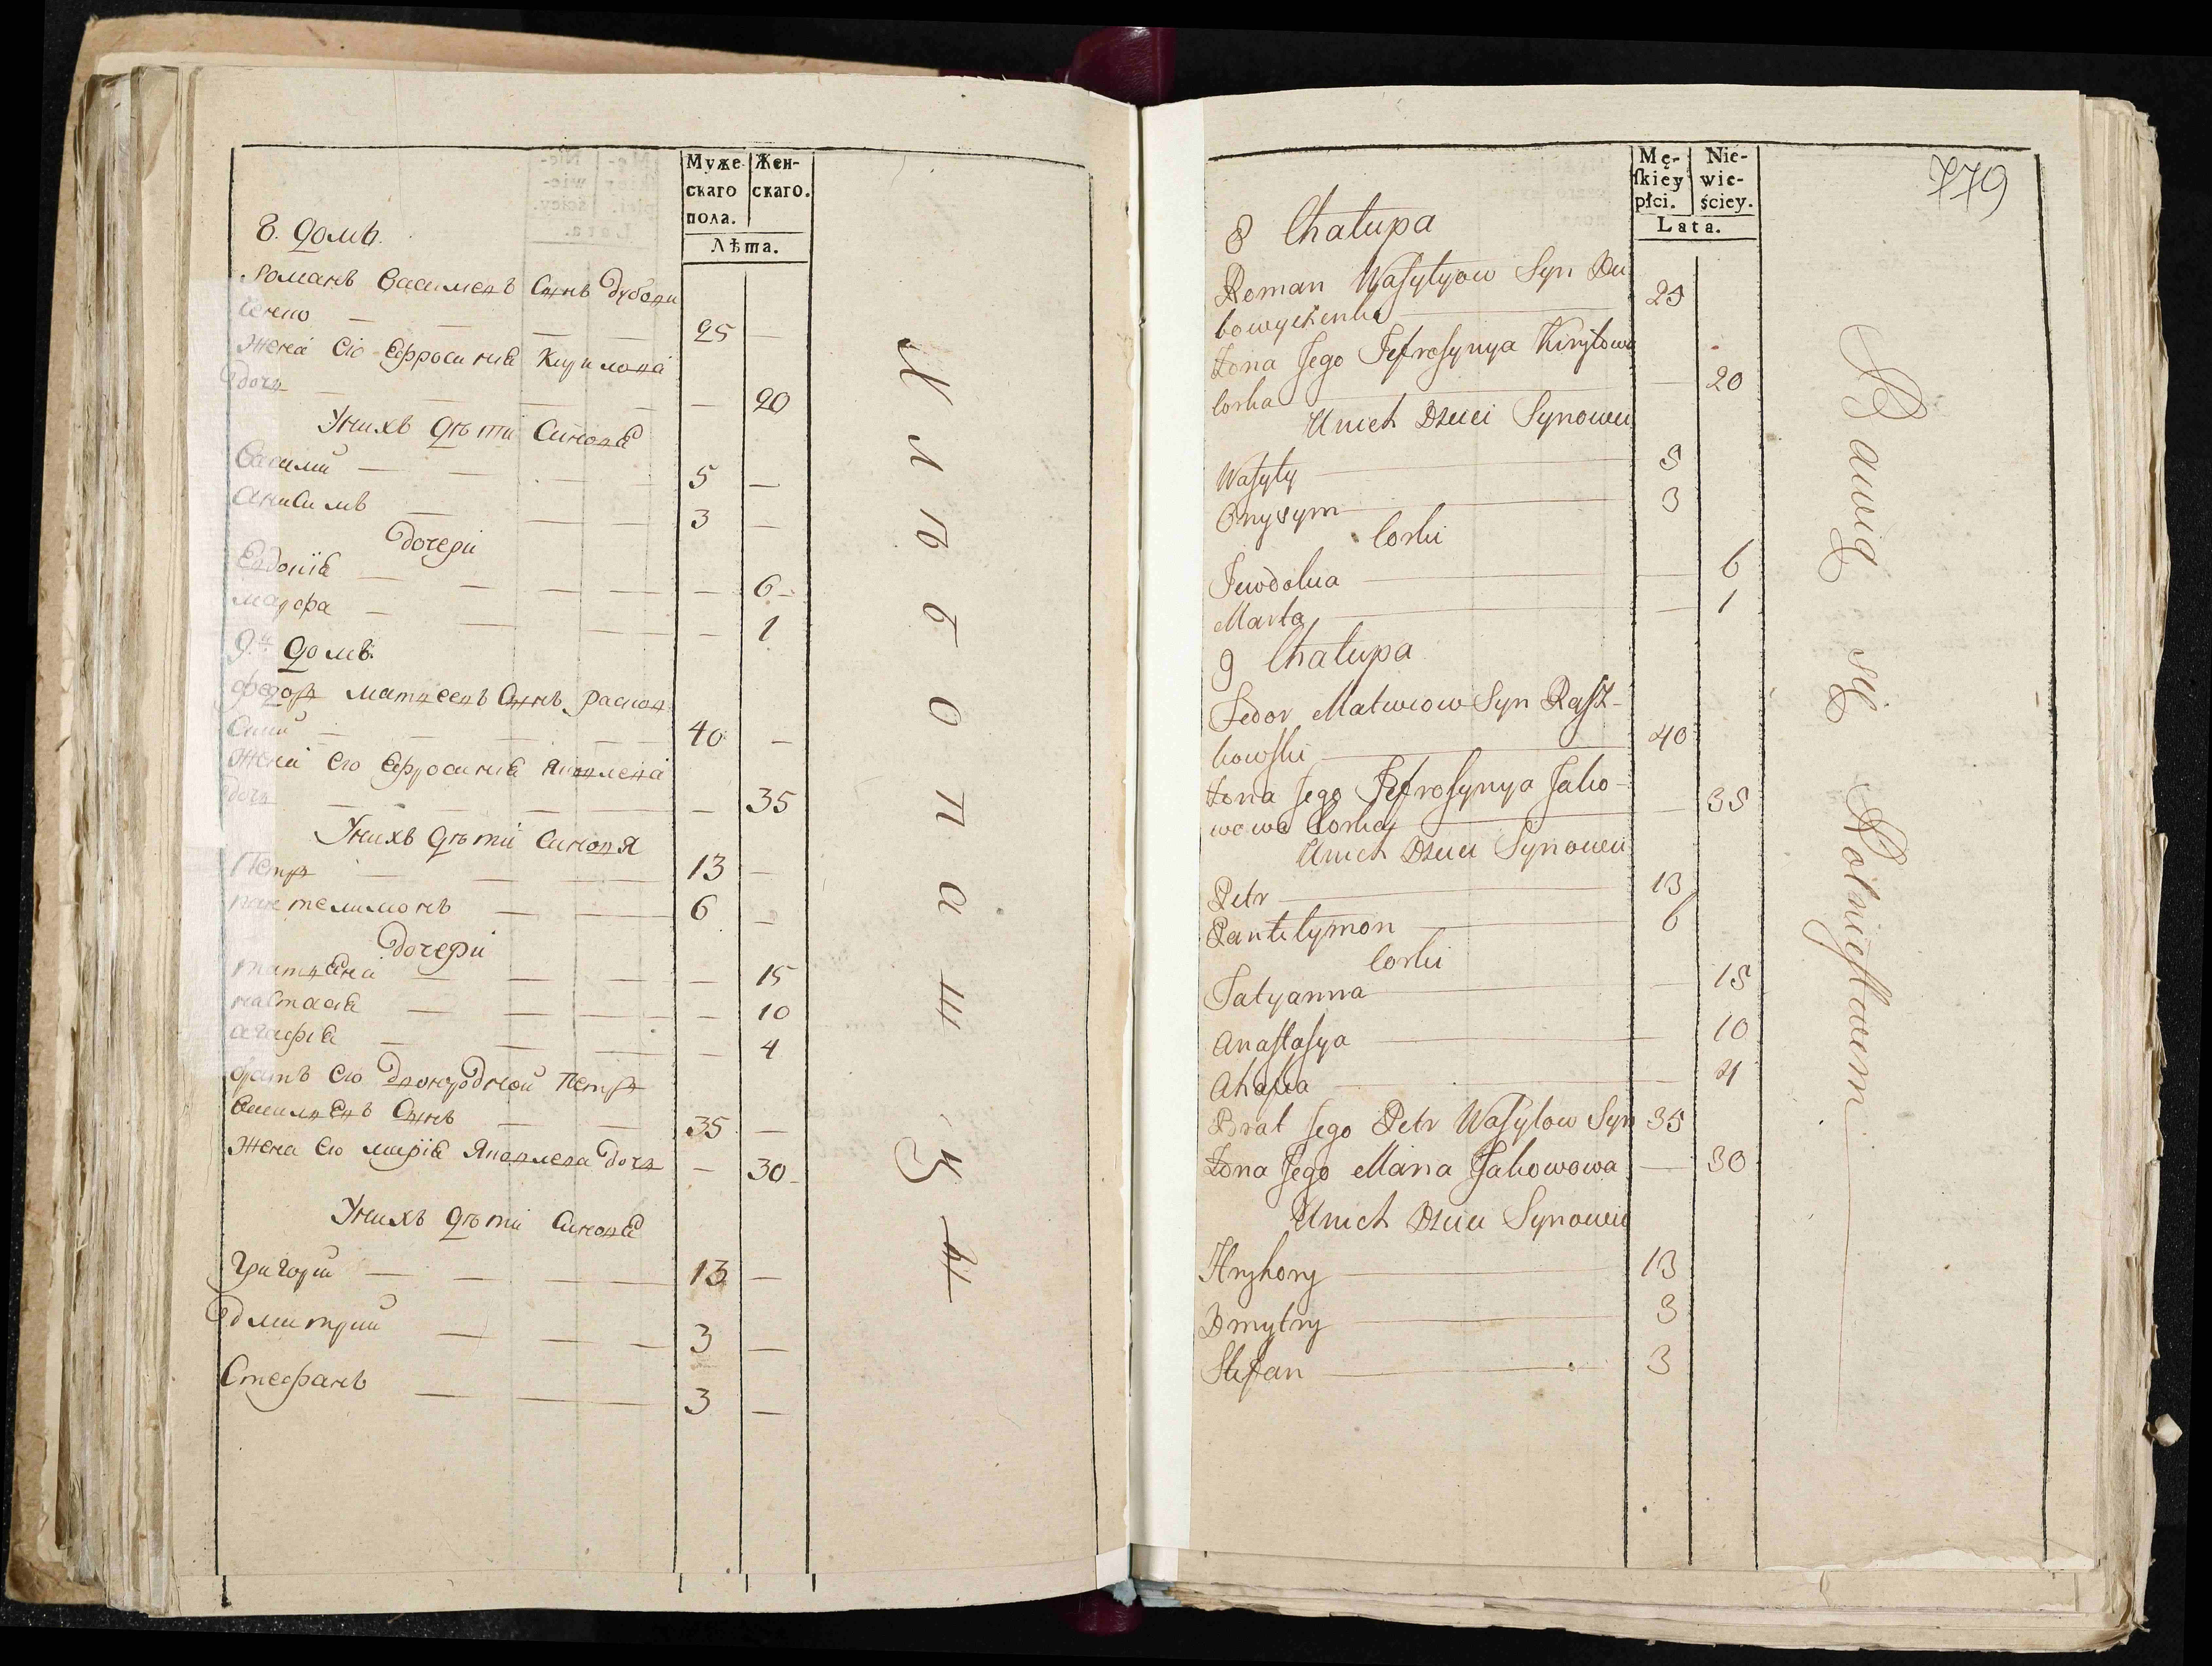 Муже
скаго
пола.
Жен-
скаго.
Лѣта.
8. домъ.
Романъ Василıевъ Сынъ Дубови
ченко — 25 —
Жена Его Ефросиния Кирилова
дочь — 20
У нихъ дѣти Синовя
Васили — 5 —
Анисимъ — 3 —
дочери
Евдокія — 6
Марфа — 1
9. домъ.
Федоръ Матвеевъ Сынъ Рашков
Скии — 40 —
Жена Его Ефросиния Яковлева
дочь — 35
У нихъ дѣти Синовя
Петръ — 13 —
пантелимонъ — 6 —
дочери
татяна — 15
настасия — 10
агафия — 4
братъ Его Двоюродной Петръ
Василıевъ Сынъ — 35 —
Жена Его мария Яковлева дочь — 30
У нихъ дѣти Синовя
Григории — 13 —
Дмитрии — 3 —
Стефанъ — 3 —
779
Mę-
ſkiey
płci.
Nie-
wie-
ściey.
Lata.
8 Chałupa
Roman Waſylyow Syn Du
bowyczenko 25
Żona Jego Jefroſynya Kiryłowa
Corka — 20
U nich Dzieci Synowie
Waſyly 5
Onysym 3
Corki
Jewdokia 6
Marta — 1
9 Chałupa
Fedor Matwiow Syn Raſz-
kowſki 40
Żona Jego Jefroſynya Jako-
wowa Corka — 35
U nich Dzieci Synowie
Petr 13
Pantelymon 6
Corki
Tatyanna — 15
Anaſtaſya 10
Ahafia — 4
Brat Jego Petr Waſylow Syn 35
Żona Jego Maria Jakowowa — 30
U nich Dzieci Synowie
Hryhory 13
Dmytry 3
Stefan 3
Bawią się Rolnictwem